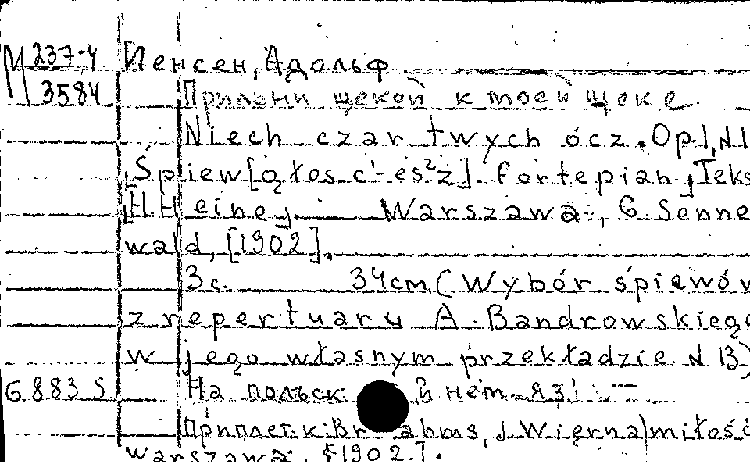 М 237-4 Йенсен, Адольф
3584 Прильни щекой к твоей щеке
Niech czar twych ócz. Op. 1, N 1
Śpiew [głos c¹-es²z]. fortepian, Teks
[H. Heine]. Warszawa, G. Senne
wald, [1902].
3 с. 34 cm (Wybór śpiewów
z repertuaru A. Bandrowskiego
w jego własnym przekładzie N 13)
G 883 S На польск й нем. яз.
Приплет. к: Br ahms, J. Wierna miłość
Warszawa, [1902].